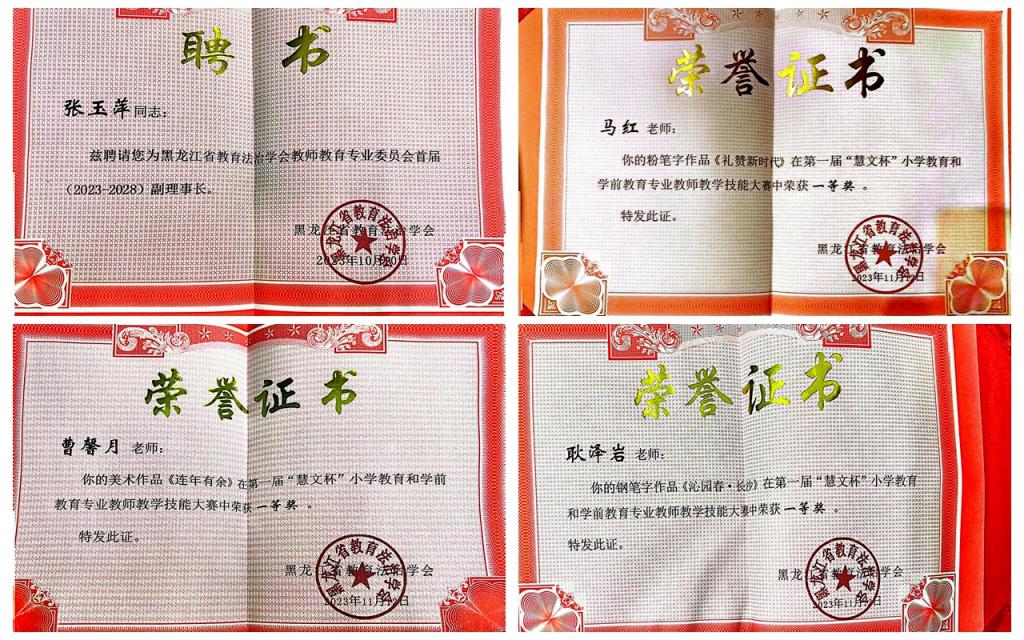 聘 书
张玉萍同志：
兹聘请您为黑龙江省教育法治学会教师教育专业委员会首届
（2023-2028）副理事长。
黑龙江省教育法治学会
黑龙江省教育法治学会
荣誉证书
马红 老师：
你的粉笔字作品《礼赞新时代》在第一届“慧文杯”小学教育和
学前教育专业教师教学技能大赛中荣获 一等奖 。
特发此证。
黑龙江省教育法治学会
黑龙江省教育法治学会
荣誉证书
曹馨月 老师：
你的美术作品《连年有余》在第一届“慧文杯”小学教育和学前
教育专业教师教学技能大赛中荣获 一等奖 。
特发此证。
黑龙江省教育法治学会
黑龙江省教育法治学会
荣誉证书
耿泽岩 老师：
你的钢笔字作品《沁园春·长沙》在第一届“慧文杯”小学教育
和学前教育专业教师教学技能大赛中荣获 一等奖 。
特发此证。
黑龙江省教育法治学会
黑龙江省教育法治学会